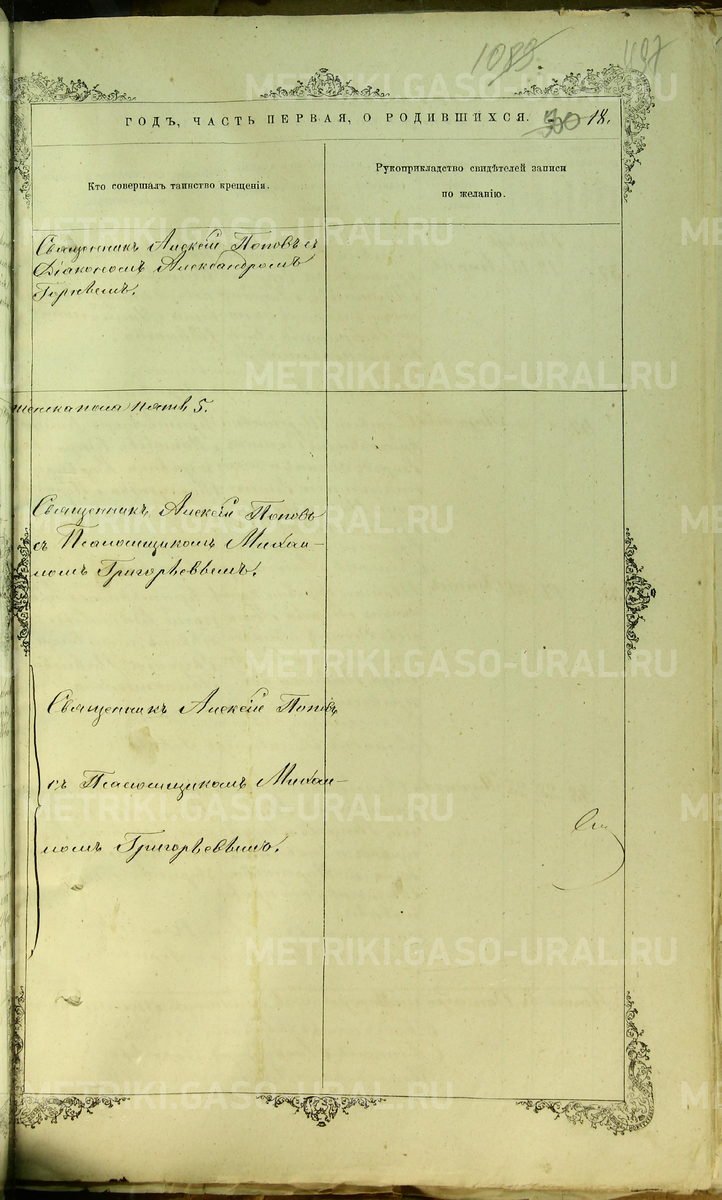 1083
ГОДЪ, ЧАСТЬ ПЕРВАЯ, О РОДИВШИХСЯ.
18.
Кто совершалъ таинство крещенія.
Рукоприкладство свидѣтелей записи
по желанію.
Священникъ Алексѣй Поповъ съ
Діакономъ Александромъ
женска пола пять 5.
Священникъ Алексѣй Поповъ
съ Псаломщикомъ Михаи-
ломъ Григорьевымъ.
Священникъ Алексѣй Поповъ
съ Псаломщикомъ Михаи-
ломъ Григорьевымъ.
METRIKI.GASO-URAL.RU